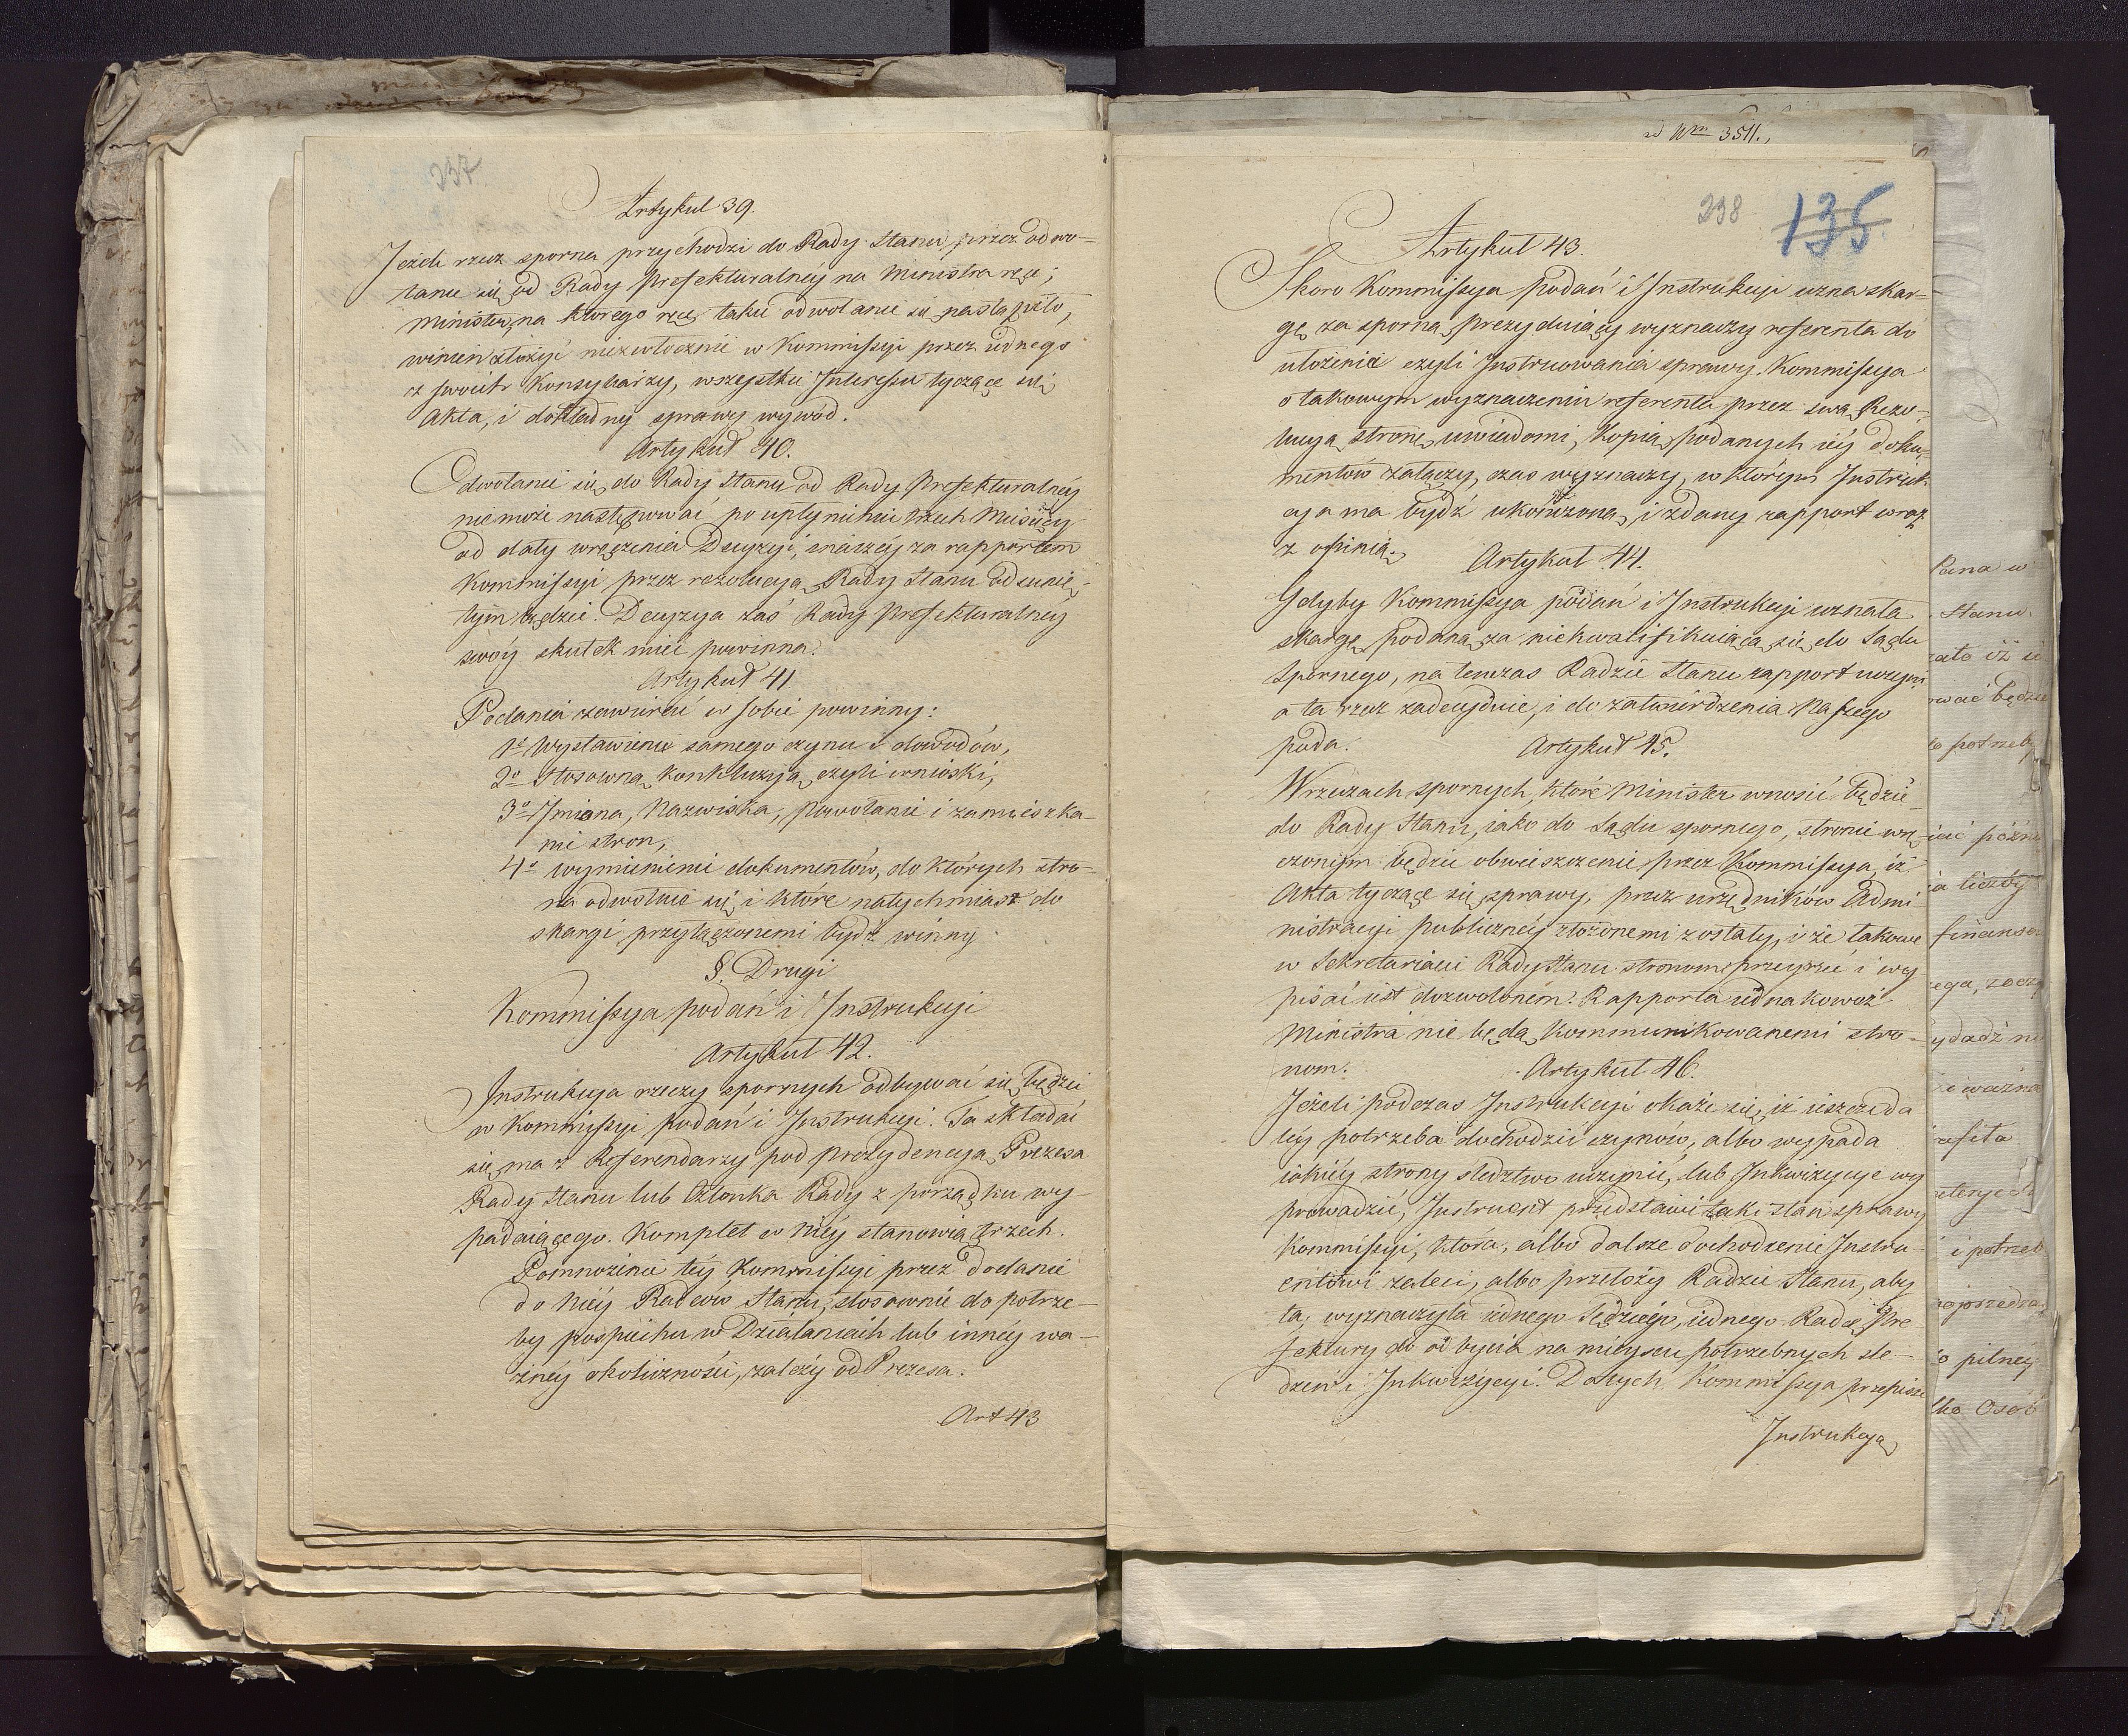 237
Artykuł 39.
Jeżeli rzecz sporna przychodzi do Rady Stanu przez odwo-
łanie się od Rady Prefekturalnéy na Ministra rzecz;
Minister, na którego rzecz takie odwołanie się nastąpiło,
winien złożyć niezwłocznie w Kommissyi przez iednego
z swoich Konsyliarzy, wszystkie Interessu tyczące się
Akta, i dokładny sprawy wywód.
Artykuł 40.
Odwołanie się do Rady Stanu od Rady Prefekturalnéy
niemoże następować po upłynieniu trzech Miesięcy
od daty wręczenia Decyzyi, inaczéy za rapportem
Kommissyi przez rezolucyą Rady Stanu odsunię-
tym będzie. Decyzya zaś Rady Prefekturalnéy
swóy skutek mieć powinna.
Artykuł 41.
Podania zawierać w sobie powinny:
1º Wystawienie samego czynu i dowodów,
2º Stosowną Konkluzyją czyli wnioski,
3º Jmiona, Nazwiska, powołanie i zamieszka-
nie stron,
4º wymienienie dokumentów, do których stro-
na odwołuie się, i które natychmiast do
skargi przyłączonemi bydź winny
§. Drugi
Kommissya podań i Instrukcyi
Artykuł 42.
Instrukcya rzeczy spornych odbywać się będzie
w Kommissyi podań i Instrukcyi. Ta składać
się ma z Referendarzy pod prezydencyą Prezesa
Rady Stanu lub Członka Rady z porządku wy-
padaiącego. Komplet w niéy stanowią trzech.
Pomnożenie téy Kommissyi przez dodanie
do niéy Radców Stanu, stosownie do potrze-
by pospiechu w Działaniach lub innéy wa-
żnéy okoliczności, zależy od Prezesa.
Art 43
ad Nrm 3511.,
238
135
Artykuł 43.
Skoro Kommissya podań i Instrukcyi uzna skar-
gę za sporną, prezyduiący wyznaczy referenta do
ułożenia czyli Instruowania sprawy. Kommissya
o takowym wyznaczeniu referenta przez swą Rezo-
lucyą stronę uwiadomi, Kopią podanych iéy doku-
mentów załączy, czas wyznaczy, w którym Instruk
cya ma bydź ukończoną, i zdany rapport wraz
z opinią.
Artykuł 44.
Gdyby Kommissya podań i Instrukcyi uznała
skargę podaną za niekwalifikuiącą się do Sądu
spornego, na tenczas Radzie Stanu rapport uczyni
a ta rzecz zadecyduie, i do zatwierdzenia Naszego
poda.
Artykuł 45.
W rzeczach spornych, które Minister wnosić będzie
do Rady Stanu, iako do Sądu spornego, stronie wrę-
czonym będzie obwieszczenie przez Kommissyą, iż
Akta tyczące się sprawy, przez urzędników Admi
nistracyi publicznéy złożonemi zostały, i że takowe
w Sekretariacie Rady Stanu stronom przeyrzeć i wy
pisać iest dozwolonem. Rapporta iednakowoż
Ministra nie będą Kommunikowanemi stro-
nom.
Artykuł 46.
Jeżeli podczas Instrukcyi okaże się, iż ieszcze da
léy potrzeba dochodzić czynów, albo wypada
iakiéy strony śledztwo uczynić, lub Inkwizycye wy
prowadzić, Instruent przedstawi taki stan sprawy
Kommissyi, która, albo dalsze dochodzenie Instru-
entowi zaleci, albo przełoży Radzie Stanu, aby
ta, wyznaczyła iednego Sędziego, iednego Radcę Pre
fektury do odbycia na mieyscu potrzebnych śle-
dzeń i Inkwizycyi. Do tych Kommissya przepisze
Instrukcyą
Pana w
Stanu.
wać będzie
potrzeby
finanso
i ważne
i potrzeb
pilnéy
Osób